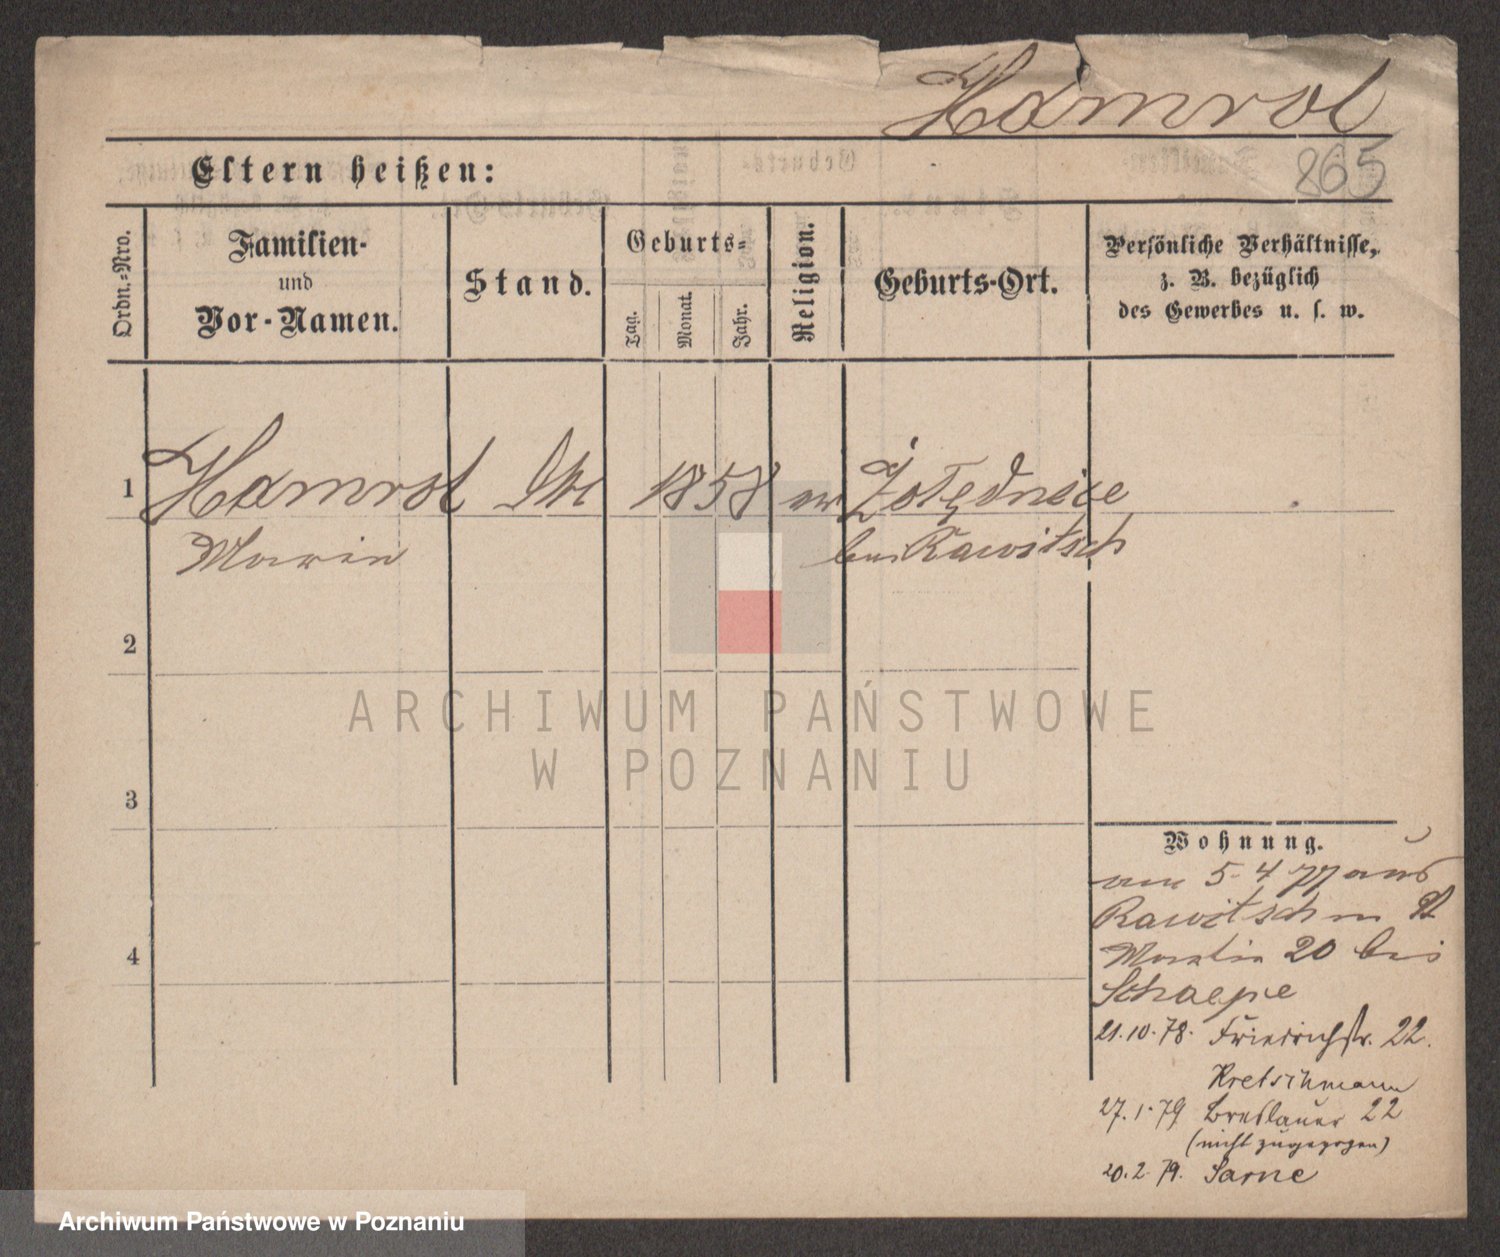 Hamrol
865
Eltern heißen:
Ordn.-Nro.
Familien-
und
Vor-Namen.
Stand.
Geburts-
Tag.
Monat.
Jahr.
Religion.
Geburts-Ort.
Persönliche Verhältnisse,
z. B. bezüglich
des Gewerbes u. s. w.
1
Hamrol
1858
Żołędnice
Marie
bei Rawitsch
2
3
4
ARCHIWUM PAŃSTWOWE
W POZNANIU
Wohnung.
am 5-4 77 aus
Rawitsch n St
Martin 20 bei
Schaepe
21.10.78. Friedrichstr. 22.
Kretschmann
27.1.79 Breslauer 22
(nicht zugezogen)
20.2.79. Sarne
Archiwum Państwowe w Poznaniu